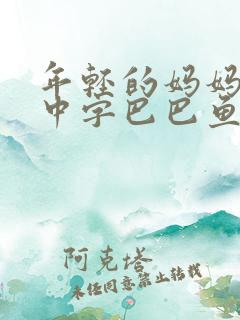 年轻的妈妈
中字巴巴鱼
阿克塔
未经同意禁止转载